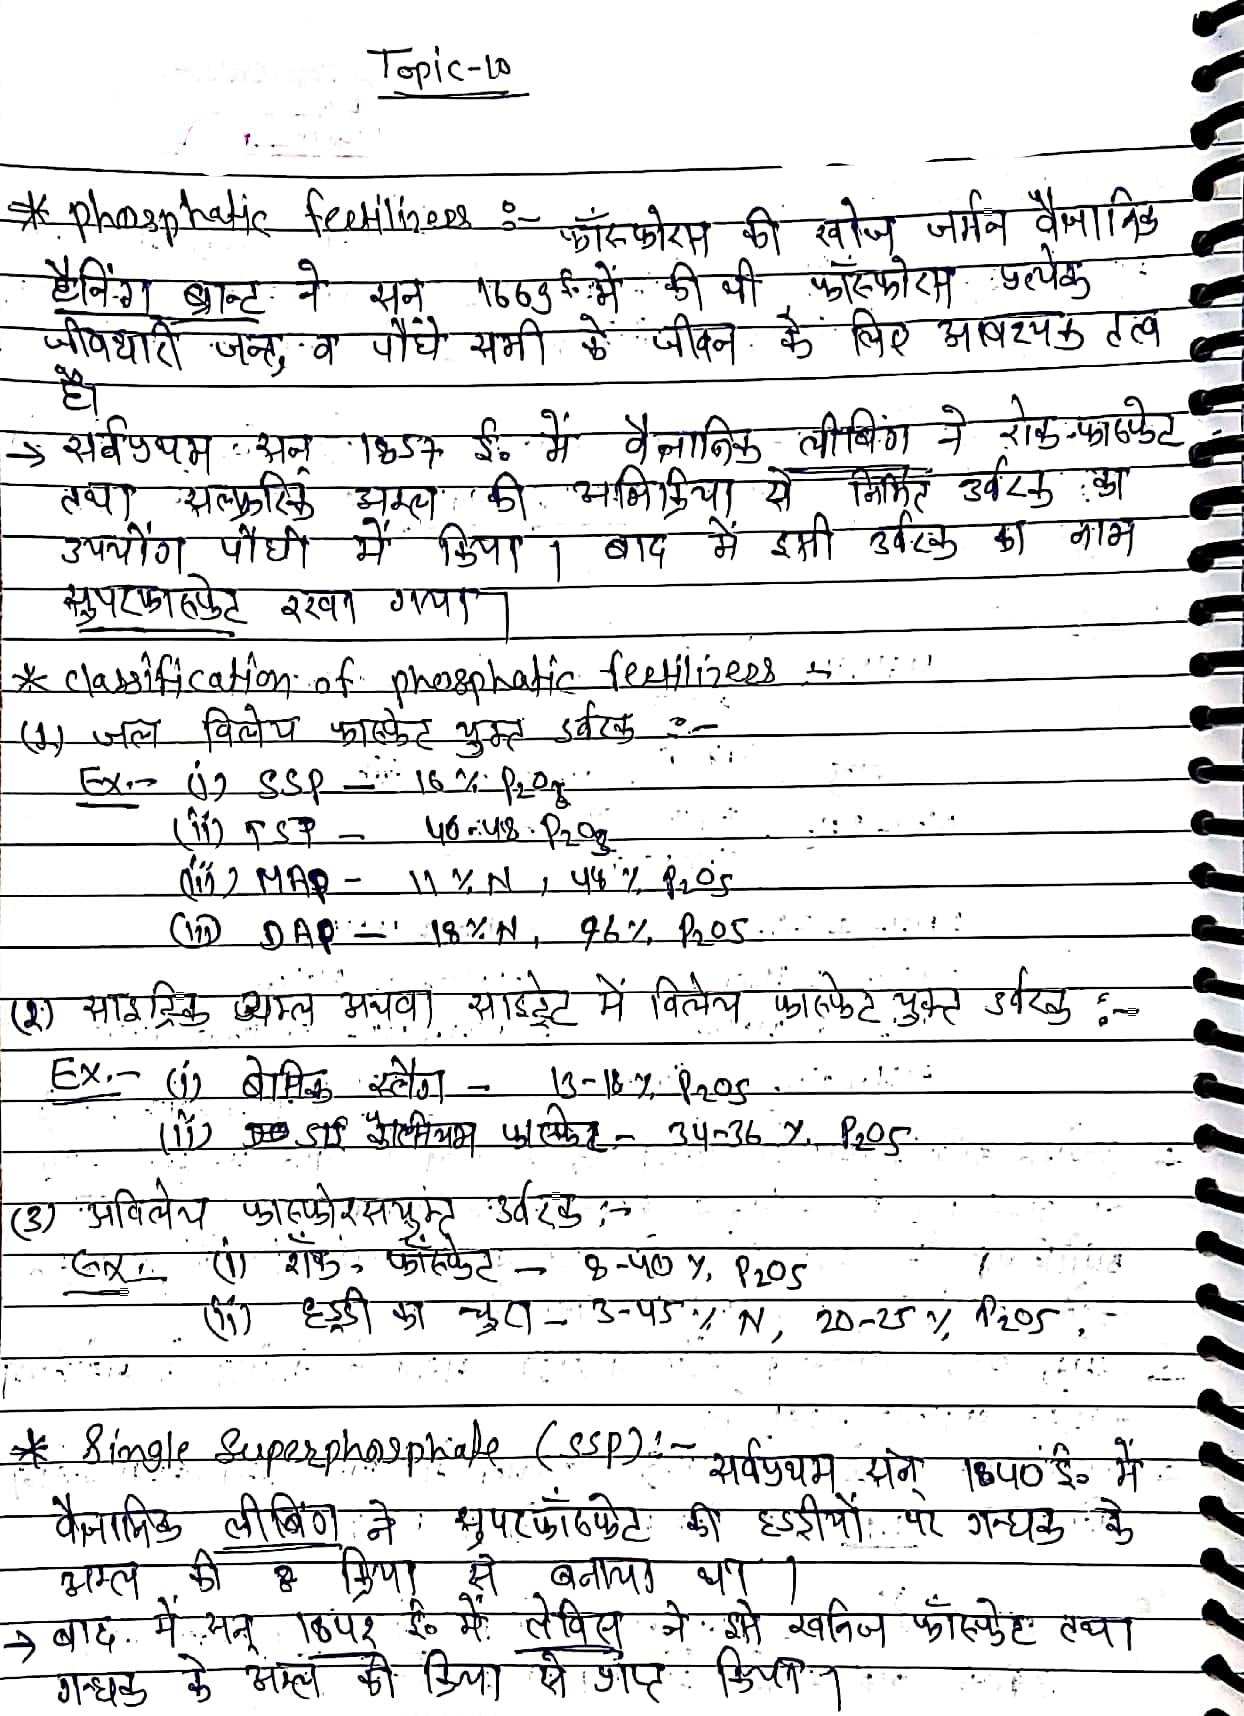 Topic-10
* phosphatic fertilizers :- फॉस्फोरस की खोज जर्मन वैज्ञानिक
हैनिंग ब्रान्ट ने सन् 1669 ई० में की थी फॉस्फोरस प्रत्येक
जीवधारी जन्तु व पौधे सभी के जीवन के लिए आवश्यक तत्व
है।
→ सर्वप्रथम सन् 1857 ई० में वैज्ञानिक लीबिंग ने रोक-फास्फेट
तथा सल्फ्यूरिक अम्ल की अभिक्रिया से निर्मित उर्वरक का
उपयोग पौधों में किया। बाद में इसी उर्वरक का नाम
सुपरफास्फेट रखा गया।
* classification of phosphatic fertilizers :-
(1) जल विलेय फास्फेट युक्त उर्वरक :-
Ex.- (i) SSP - 16% P2O5
(ii) TSP - 46-48. P2O5
(iii) MAP - 11% N, 48% P2O5
(iii) DAP - 18% N, 46% P2O5
(2) साइट्रिक अम्ल अथवा साइट्रेट में विलेय फास्फेट युक्त उर्वरक :-
Ex.- (i) बेसिक स्लैग - 13-18% P2O5
(ii) कैल्सियम फास्फेट - 34-36 % P2O5
(3) अविलेय फास्फोरसयुक्त उर्वरक :-
Ex.- (i) रॉक-फॉस्फेट - 8-40 % P2O5
(ii) हड्डी का चूरा - 3-45 % N, 20-25 % P2O5
* Single Superphosphate (SSP) :- सर्वप्रथम सन् 1840 ई० में
वैज्ञानिक लीबिंग ने सुपरफॉस्फेट को हडडीयों पर गन्धक के
अम्ल की क्रिया से बनाया था।
→ बाद में सन् 1842 ई० में लेविस ने इसे खनिज फॉस्फेट तथा
गन्धक के अम्ल की क्रिया से प्राप्त किया।